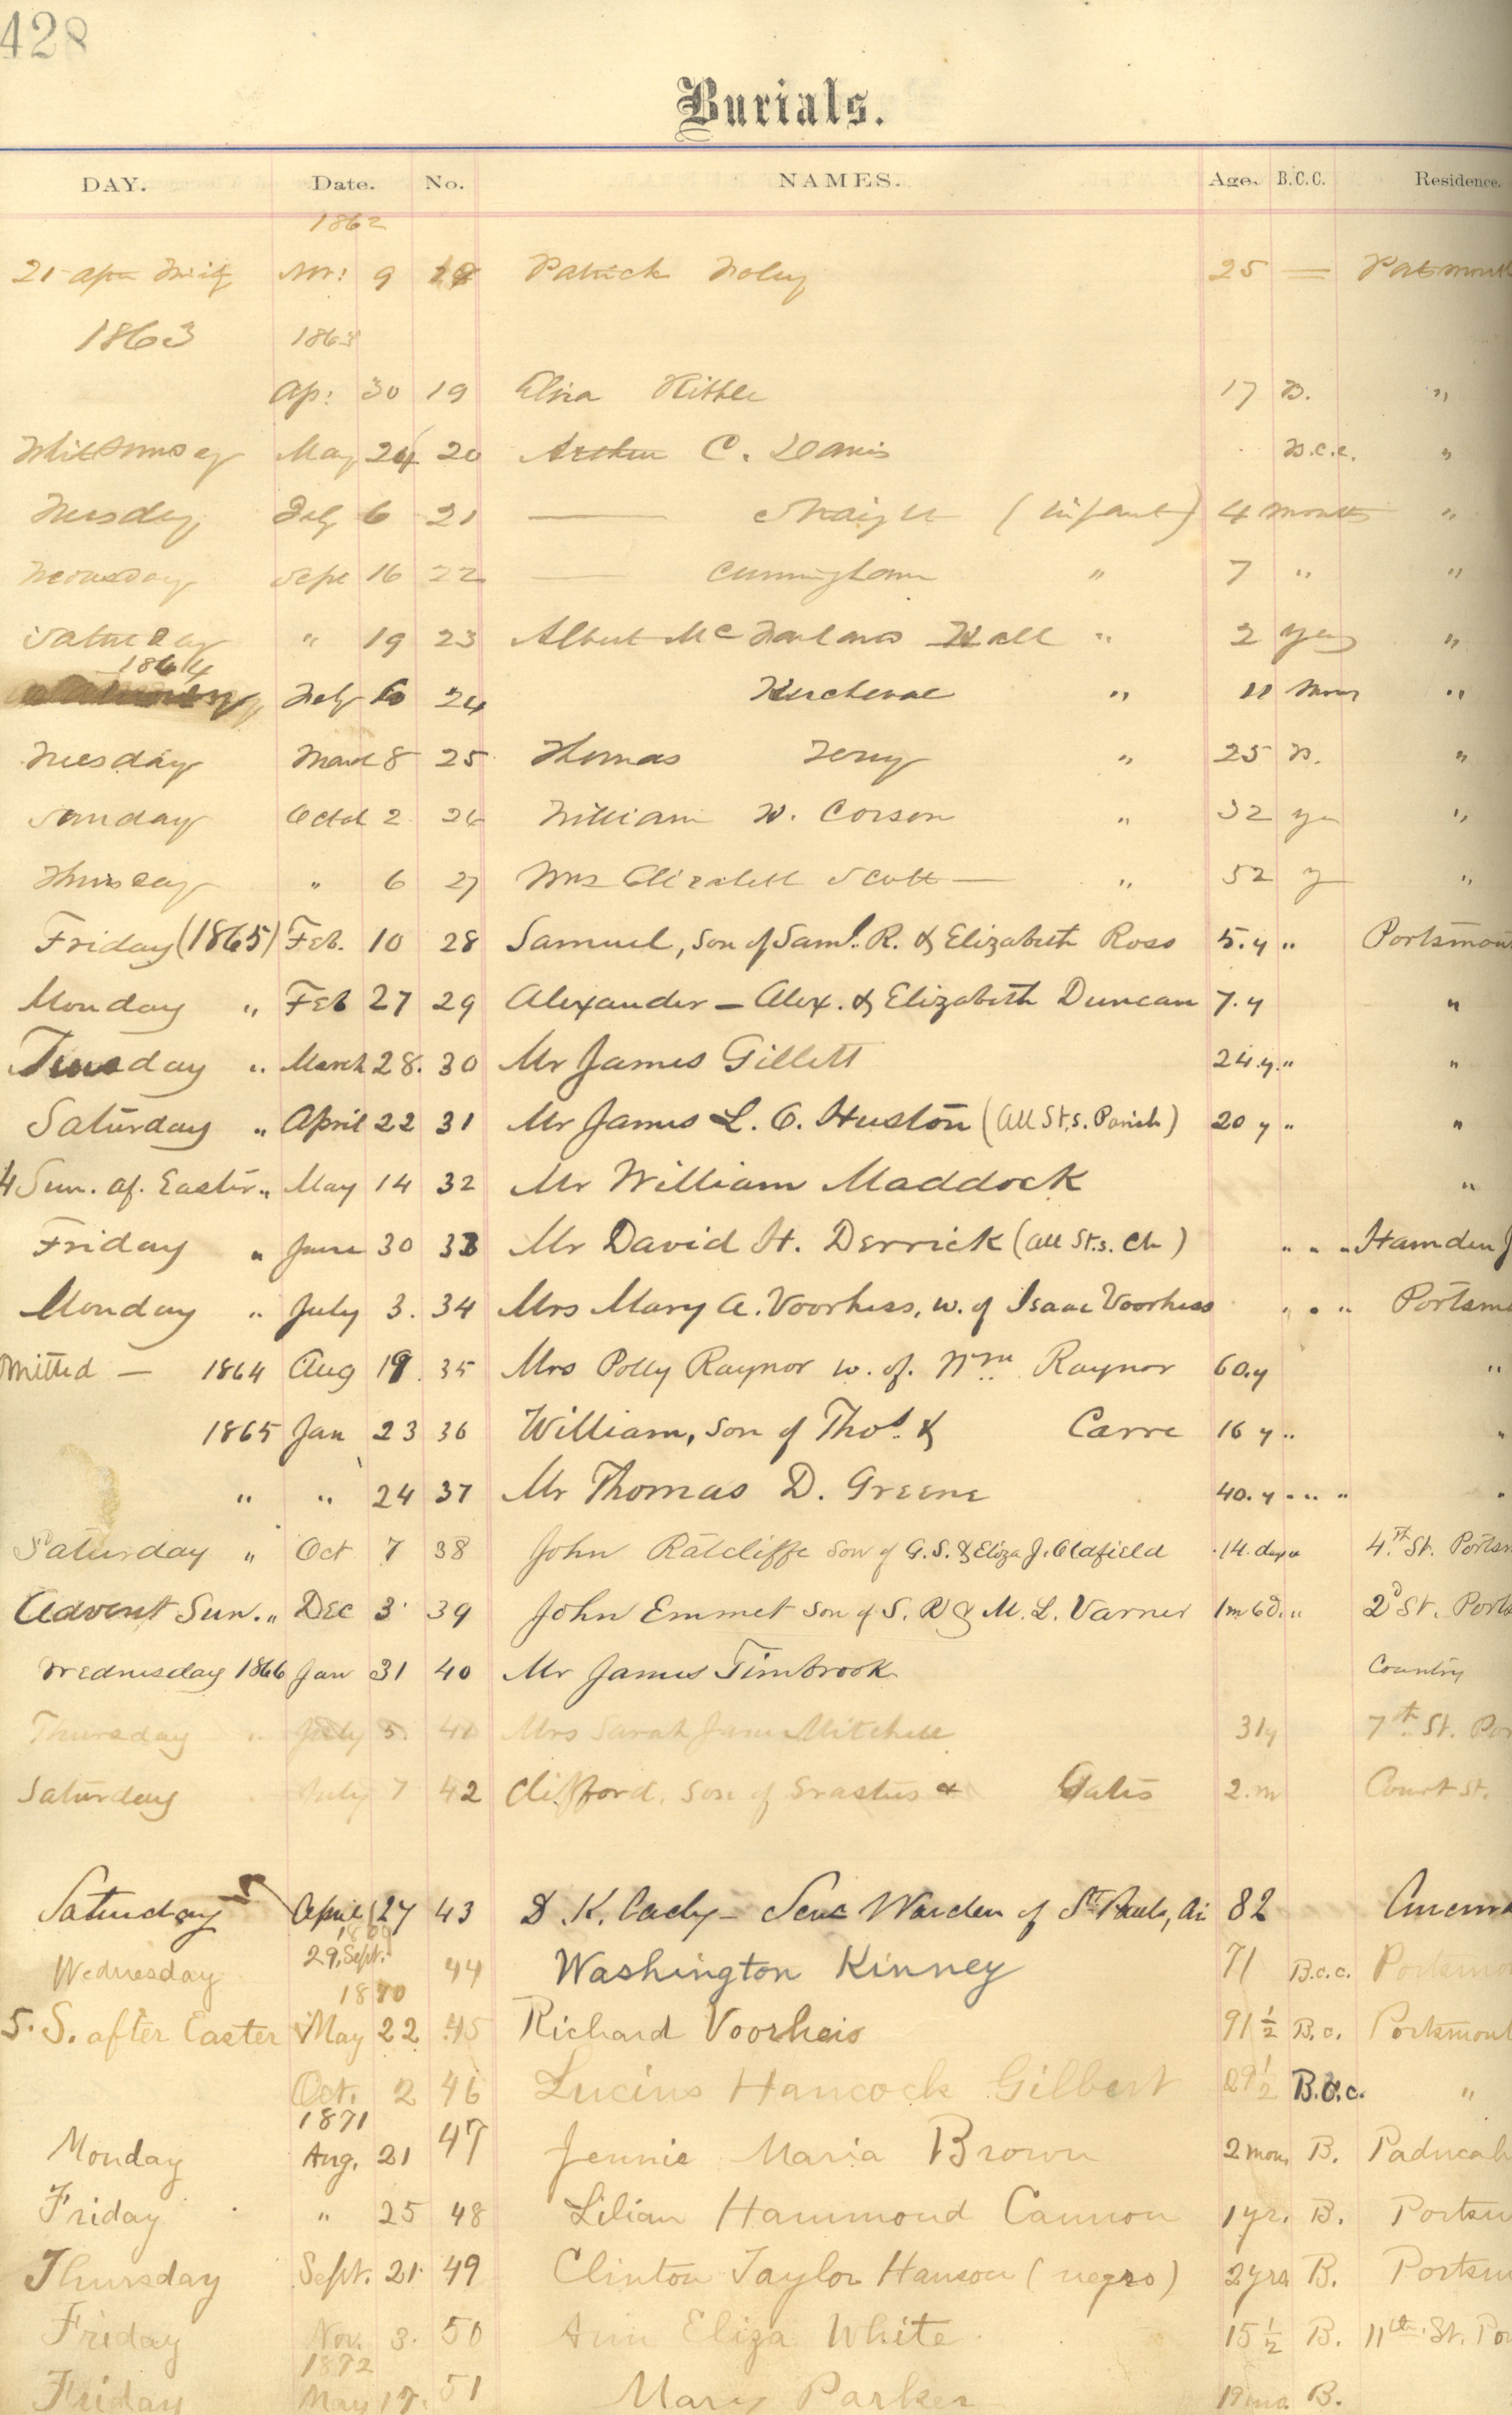 428
Burials.
DAY. Date. No. NAMES. Age. B.C.C. Residence.
1862
9 Patrick 25 —
1863 1863
Ap: 30 19 17 B. "
May 24 20 C. Davis B.C.C. "
Tuesday July 6 21 —— (infant) 4 months "
Wednesday Sept 16 22 — Cunningham " 7 " "
Saturday " 19 23 Albert Mc Hall " 2 years "
1864
24 Kercheval " 11 "
Tuesday March 8 25 Thomas Terry " 25 "
Sunday Octob 2 26 William W. Corson " 32 "
Thursday " 6 27 Mrs Elizabeth Scott — " 52 y "
Friday (1865) Feb. 10 28 Samuel, Son of Saml. R. & Elizabeth Ross 5.y " Portsmou
Monday " Feb 27 29 Alexander — Alex. & Elizabeth Duncan 7.y "
Tuesday " March 28. 30 Mr James Gillett 24.y. " "
Saturday " April 22 31 Mr James L. O. Huston (All St.s. Parish) 20 y " "
4 Sun. af. Easter " May 14 32 Mr William Maddock "
Friday " June 30 33 Mr David H. Derrick (All St.s. Ch) " " " Hamden J
Monday " July 3. 34 Mrs Mary A. Voorhess, w. of Isaac Voorhess " " " Portsm
Omitted — 1864 Aug 19. 35 Mrs Polly Raynor w. of. Wm. Raynor 60.y "
1865 Jan 23 36 William, Son of Thos. & Carre 16 y " "
" " 24 37 Mr Thomas D. Greene 40. y " " " "
Saturday " Oct 7 38 John Ratcliffe Son of G. S. & Eliza J. Oldfield 14. days 4.th St. Ports
Advent Sun. " Dec 3 39 John Emmet Son of S. R & M. L. Varner 1m 6d. " 2d St. Ports
Wednesday 1866 Jan 31 40 Mr James Timbrook Country
Thursday " July 5. 41 Mrs Sarah Jane Mitchell 31y 7th St. Por
Saturday July 7 42 Clifford, Son of Erastus & Gates 2.m Court St.
Saturday April 27 43 K. Cady — Warden of St. Pauls, 82
1869
Wednesday 29, Sept. 44 Washington Kinney 71 B.c.c. Portsmo
1870
5. S. after Easter May 22 45 Richard Voorheis 91 1/2 B.c. Portsmout
Oct. 2 46 Lucius Hancock Gilbert 29 1/2 B.C.c. "
1871
Monday Aug. 21 47 Jennie Maria Brown 2 mon. B. Paducah
Friday " 25 48 Lilian Hammond Cannon 1 yr. B. Portsm
Thursday Sept. 21. 49 Clinton Taylor Hanson (negro) 2 yrs. B. Portsm
Friday Nov. 3. 50 Ann Eliza White 15 1/2 B. 11th. St. Po
1872
Friday May 17. 51 Mary Parker 19 B.